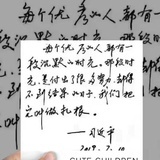 每个优秀的人都有一
段沉默的时光。那段时
每个优秀的人都有一
段沉默的时光。那段时
光,是付出了很多努力,却得
不到结果的日子,我们把
它叫做扎根。
2019.7.10
CUTE CHILDREN